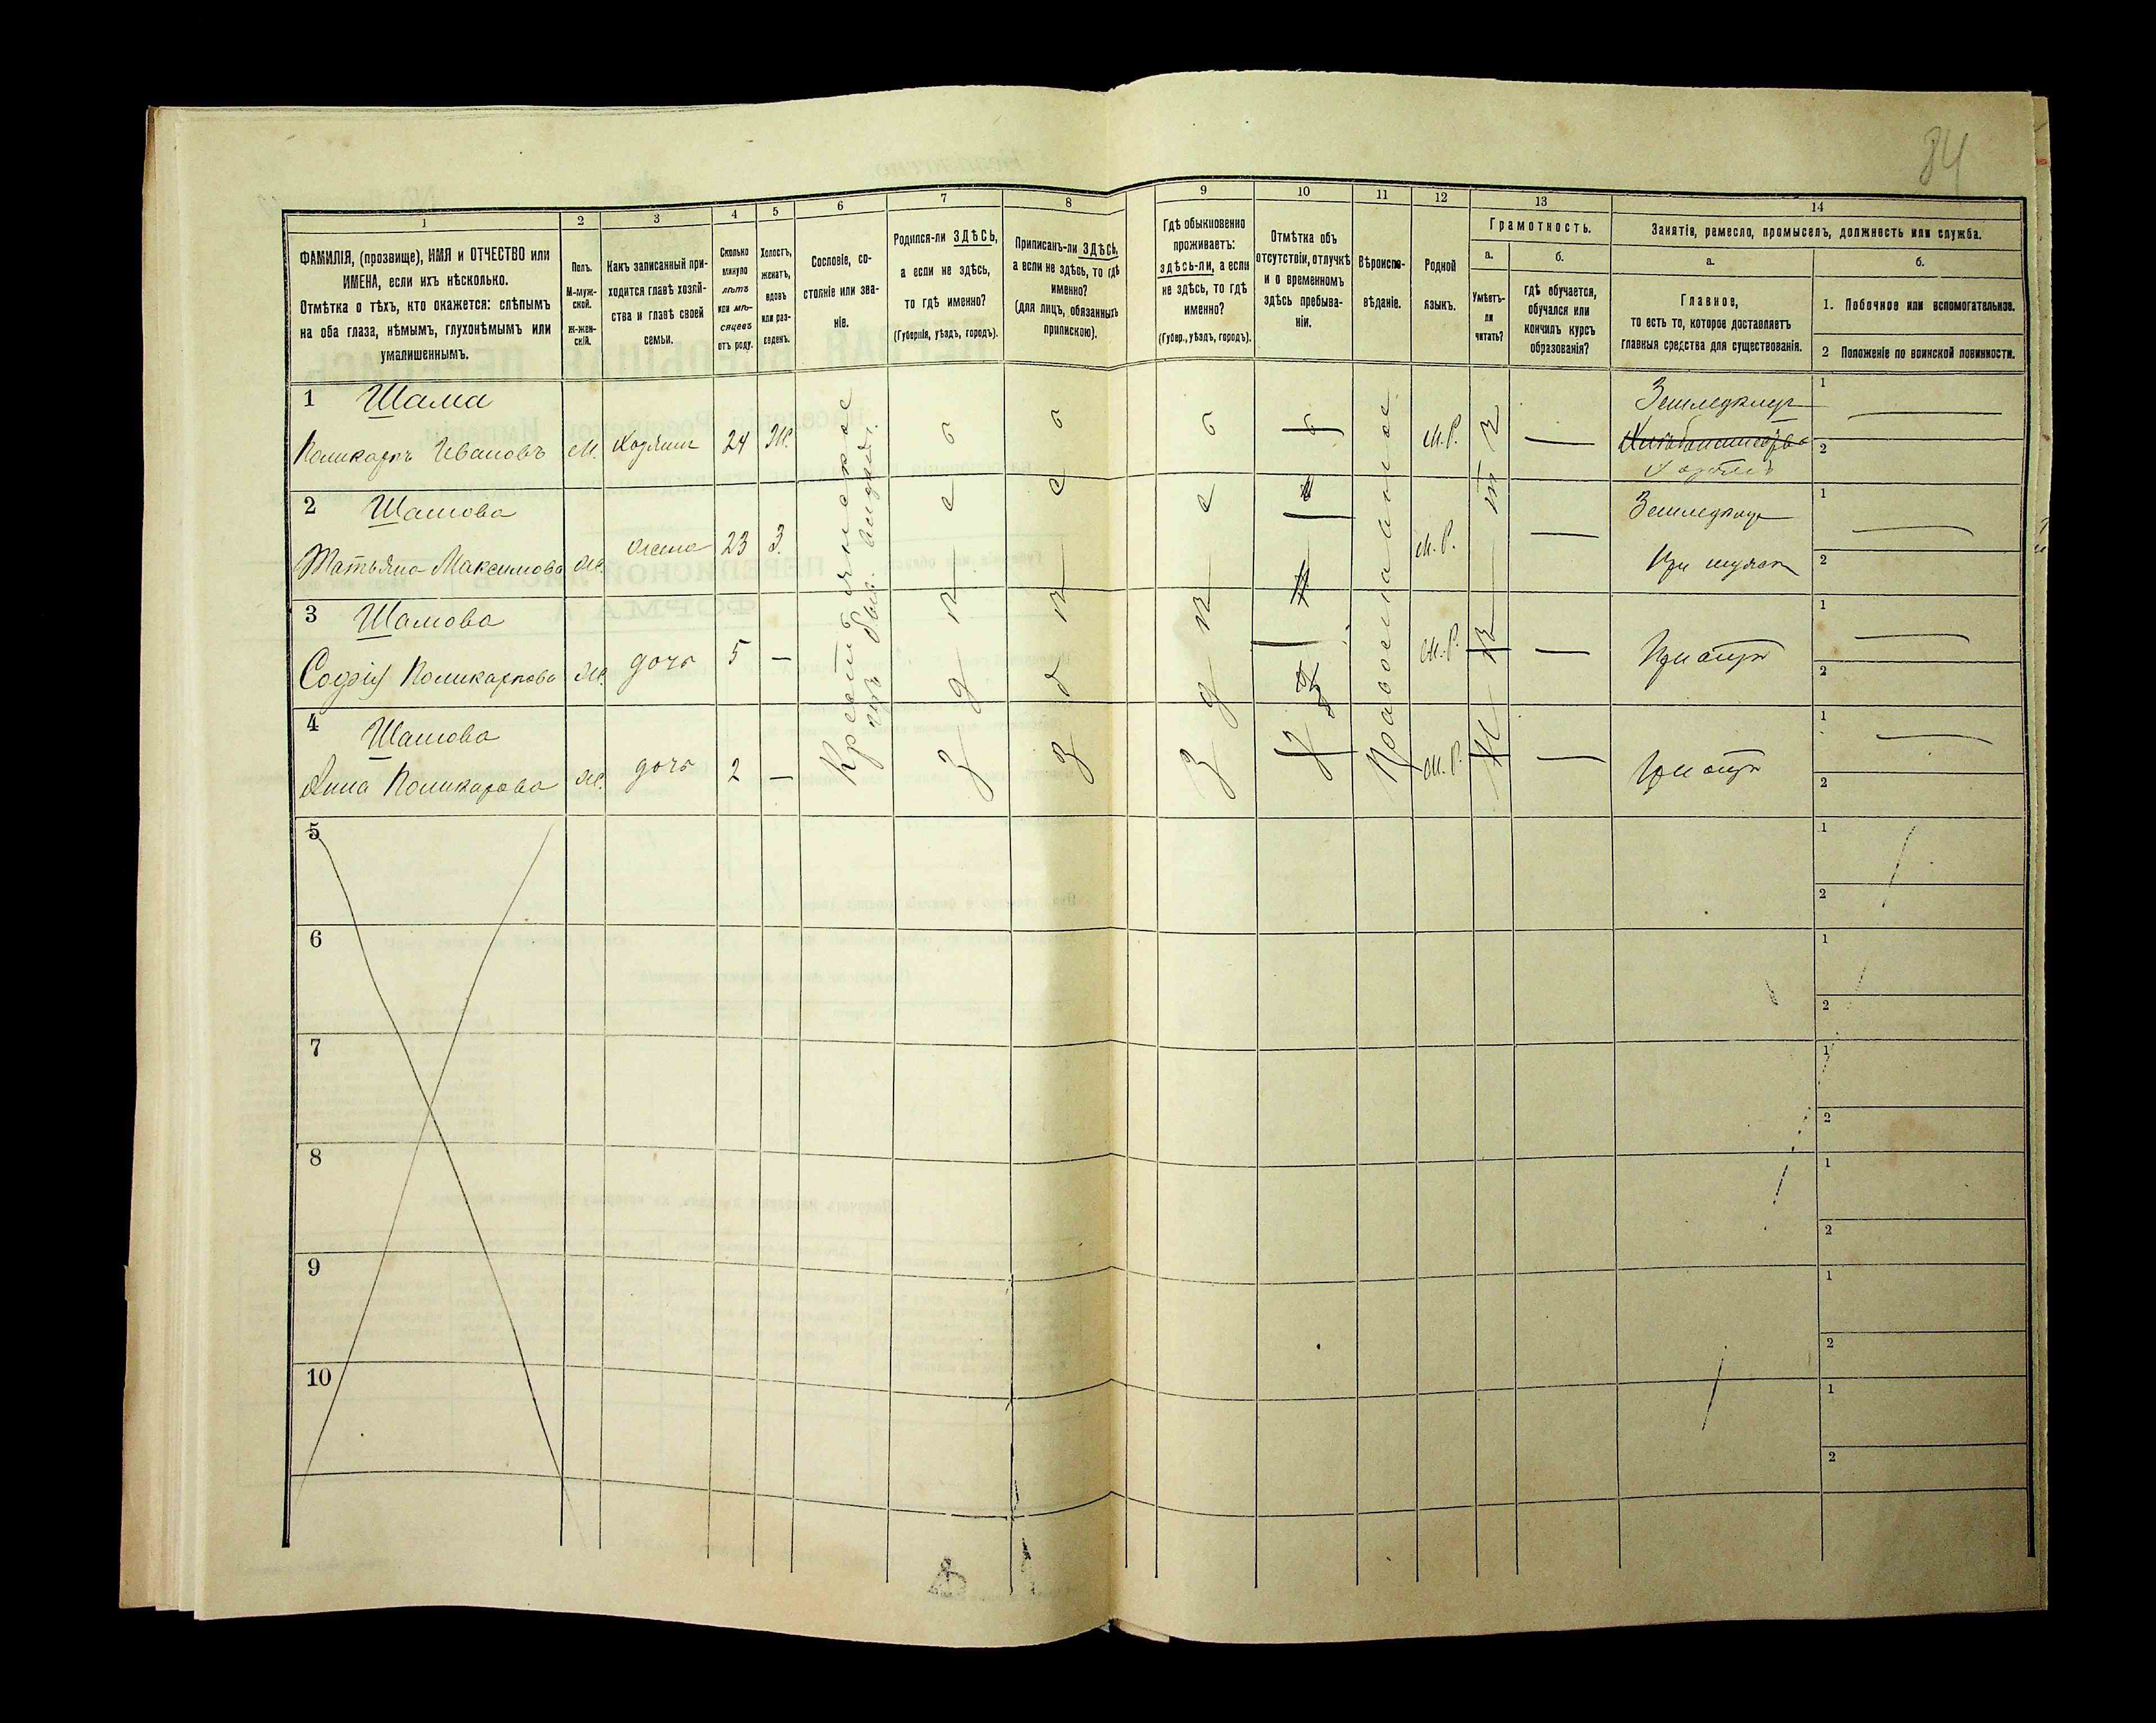 84
1
2
3
4
5
6
7
8
9
10
11
12
13
14
ФАМИЛІЯ, (прозвище), ИМЯ и ОТЧЕСТВО или
ИМЕНА, если ихъ нѣсколько.
Отмѣтка о тѣхъ, кто окажется: слѣпымъ
на оба глаза, нѣмымъ, глухонѣмымъ или
умалишеннымъ.
Полъ.
М-муж-
ской.
Ж-жен-
скій.
Какъ записанный при-
ходится главѣ хозяй-
ства и главѣ своей
семьи.
Сколько
минуло
лѣтъ
или мѣ-
сяцевъ
отъ роду.
Холостъ,
женатъ,
вдовъ
или раз-
веденъ.
Сословіе, со-
стояніе или зва-
ніе.
Родился-ли ЗДѢСЬ,
а если не здѣсь,
то гдѣ именно?
(Губернія, уѣздъ, городъ).
Приписанъ-ли ЗДѢСЬ,
а если не здѣсь, то гдѣ
именно?
(для лицъ, обязанныхъ
припискою).
Гдѣ обыкновенно
проживаетъ:
здѣсь-ли, а если
не здѣсь, то гдѣ
именно?
(Губер., уѣздъ, городъ).
Отмѣтка объ
отсутствіи, отлучкѣ
и о временномъ
здѣсь пребыва-
ніи.
Вѣроиспо-
вѣданіе.
Родной
языкъ.
Грамотность.
а.
Умѣетъ-
ли
читать?
б.
гдѣ обучается,
обучался или
кончилъ курсъ
образованія?
Занятія, ремесло, промыселъ, должность или служба.
а.
Главное,
то есть то, которое доставляетъ
главныя средства для существованія.
б.
1. Побочное или вспомогательное.
2 Положеніе по воинской повинности.
1 Шама
Поликарпъ Ивановъ М. Хозяинъ 24 Ж. М.Р. —
1 —
2
2 Шамова
Татьяна Максимова Ж. жена 23 З. М.Р. —
При мужѣ
1 —
2
3 Шамова
Софія Поликарпова Ж. дочь 5 — М.Р. —
При отцѣ
1 —
2
4 Шамова
Анна Поликарпова Ж. дочь 2 — М.Р. —
При отцѣ
1 —
2
Крестьянское
Здѣсь
Здѣсь
Здѣсь
Православное
5
1
2
6
1
2
7
1
2
8
1
2
9
1
2
10
1
2